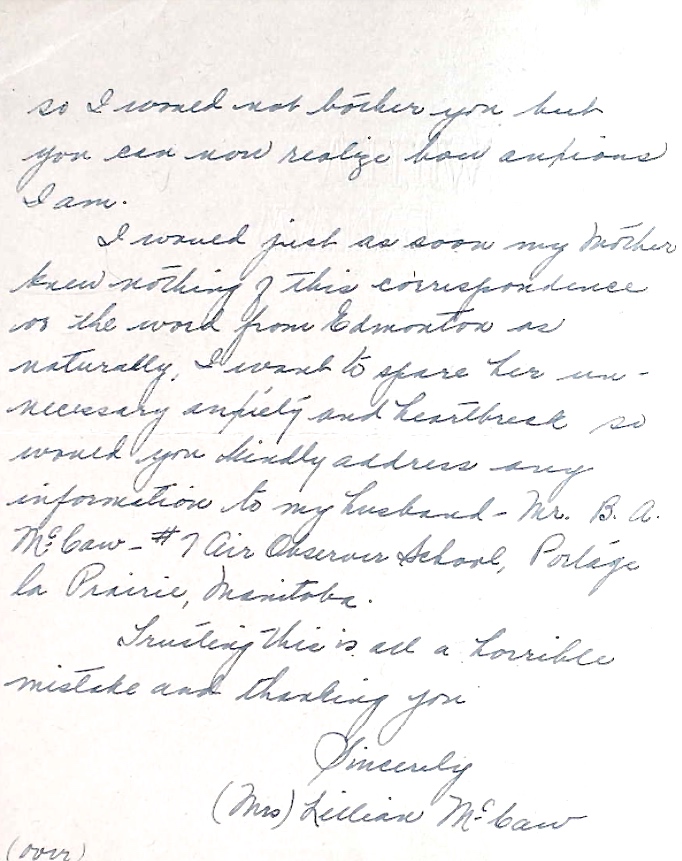 so I would not bother you but
you can now realize how anxious
I am.
I would just as soon my Mother
knew nothing of this correspondence
or the word from Edmonton as
naturally, I want to spare her un-
necessary anxiety and heartbreak so
would you kindly address any
information to my husband - Mr. B. A.
McCaw - #7 Air Observer School, Portage
la Prairie, Manitoba.
Trusting this is all a horrible
mistake and thanking you
Sincerely
(Mrs) Lillian McCaw
(over)